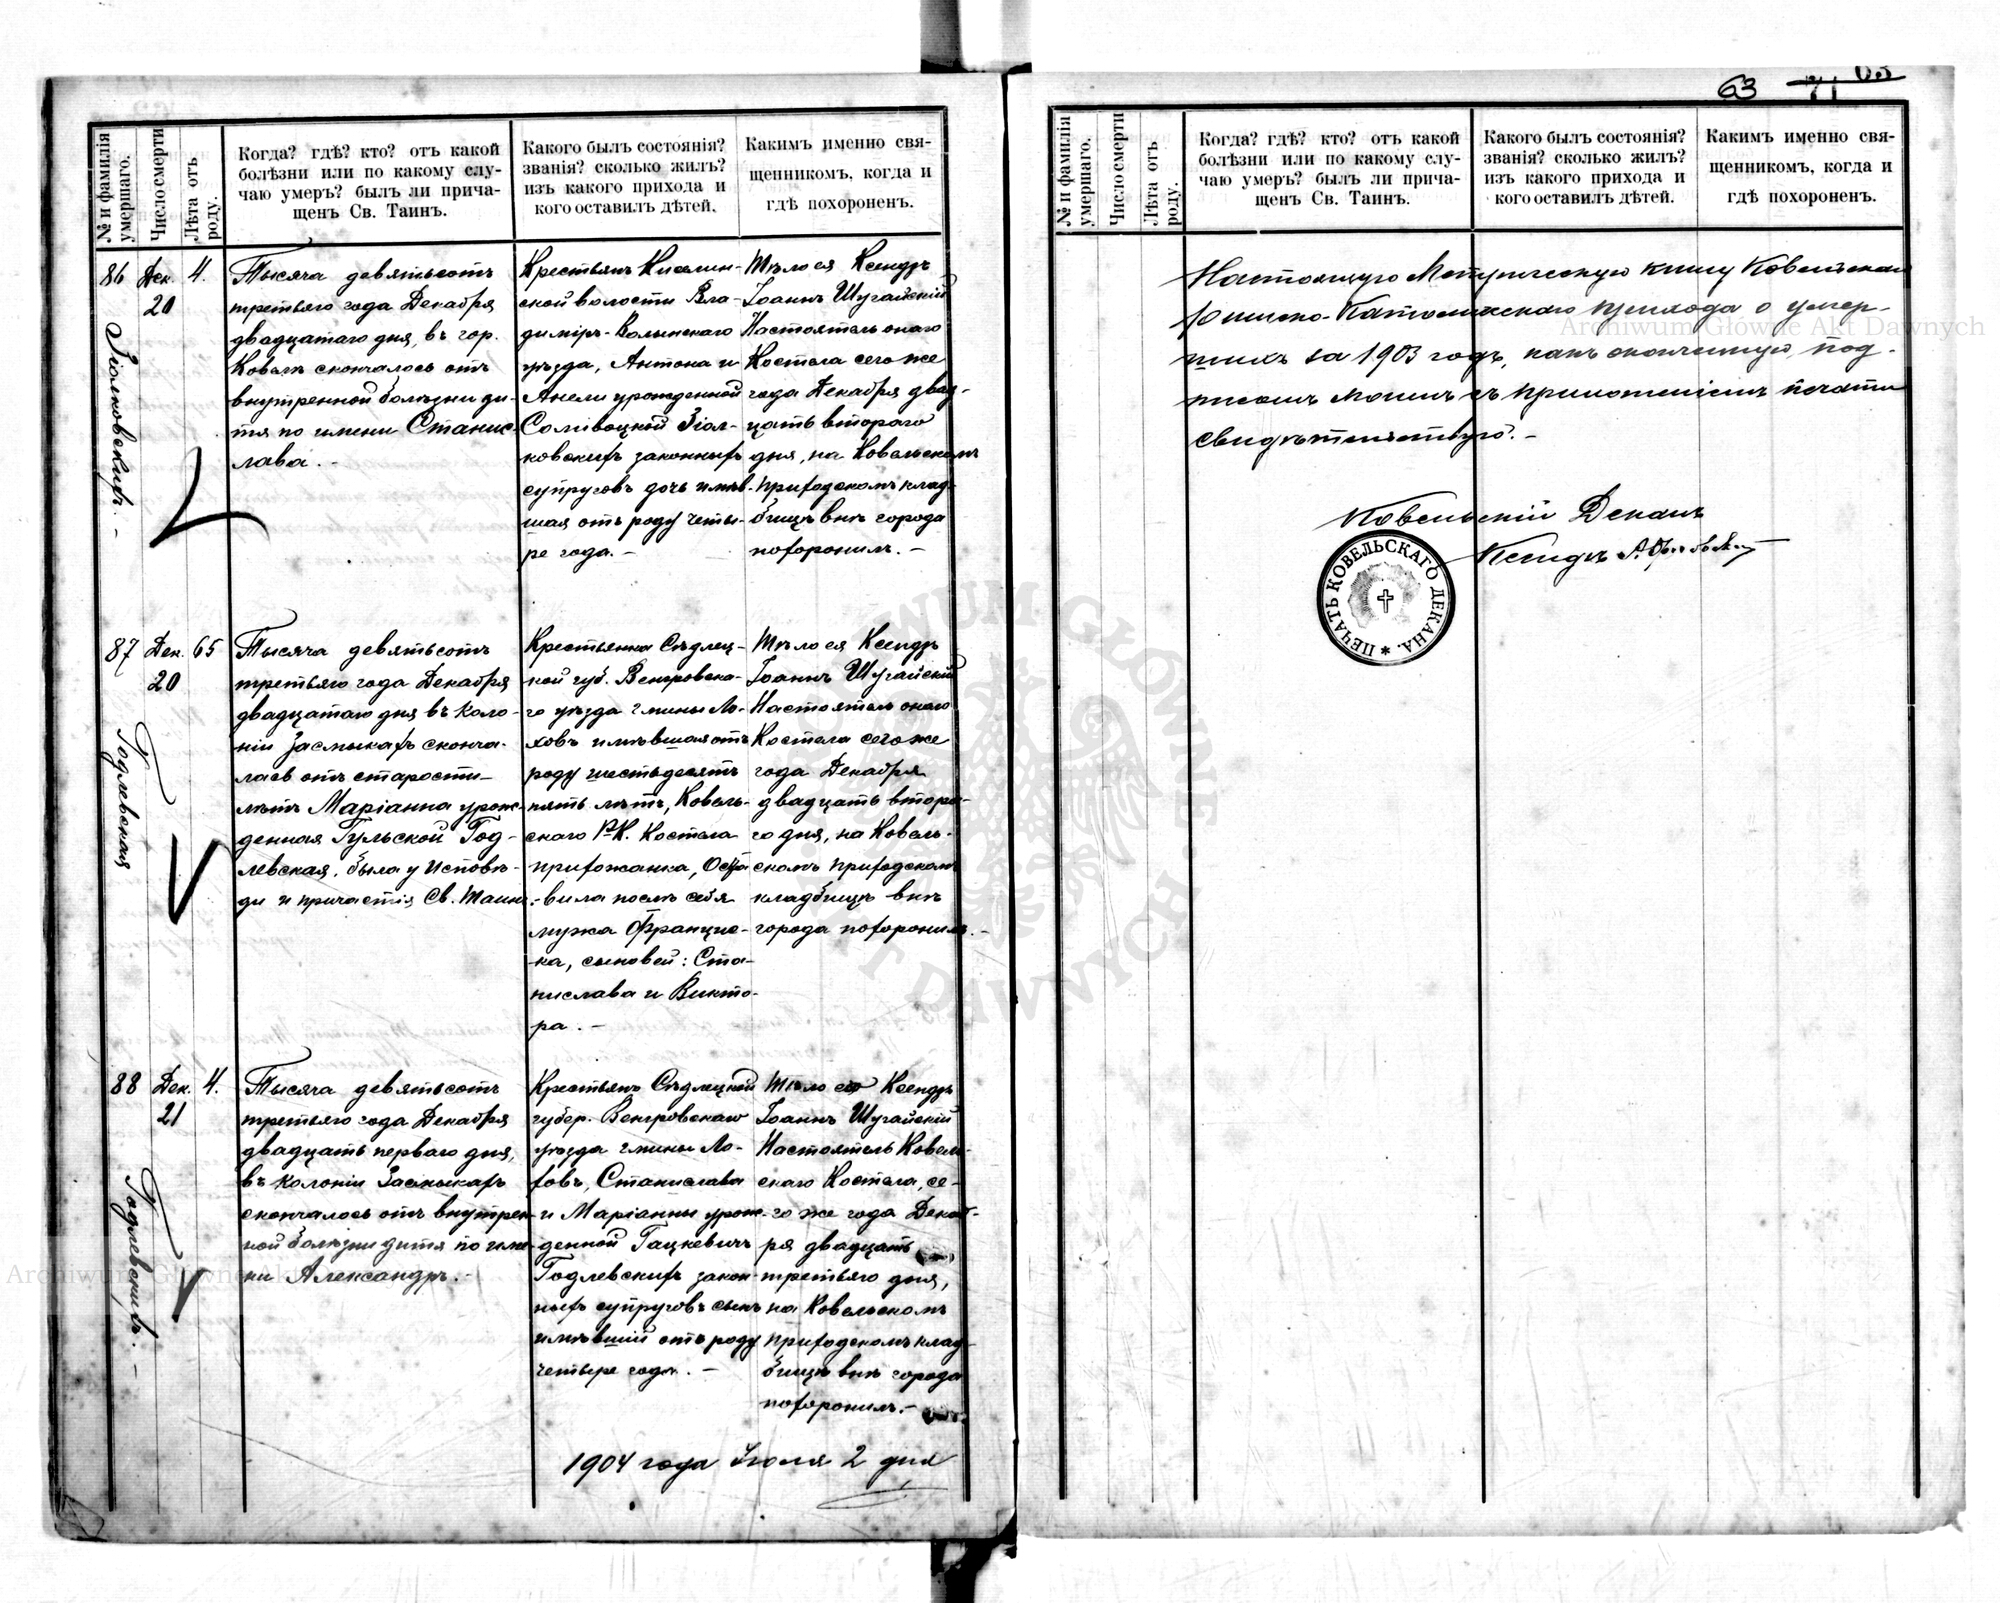 63 71 63
№ и фамилія умершаго.
Число смерти
Лѣта отъ роду.
Когда? гдѣ? кто? отъ какой
болѣзни или по какому слу-
чаю умеръ? былъ ли прича-
щенъ Св. Таинъ.
Какого былъ состоянія?
званія? сколько жилъ?
изъ какого прихода и
кого оставилъ дѣтей.
Какимъ именно свя-
щенникомъ, когда и
гдѣ похороненъ.
86
Зіолковскихъ. -
Дек.
20
4.
Тысяча девятьсотъ
третьяго года Декабря
двадцатаго дня, въ гор.
Ковелѣ скончалось отъ
внутренной болѣзни ди-
тя по имени Станис-
лава. -
Крестьянъ Киселин-
ской волости Вла-
димiръ-Волынскаго
уѣзда, Антона и
Анели урожденной
Зіол-
ковскихъ законныхъ
супруговъ дочь имѣв-
шая отъ роду четы-
ре года. -
Тѣло ея Ксендзъ
Іоаннъ Шугайскій
Настоятель онаго
Костела сего же
года Декабря двад-
цать втораго
дня, на Ковельскомъ
приходскомъ клад-
бищѣ внѣ города
похоронилъ. -
87
Годлевская
Дек.
20
65
Тысяча девятьсотъ
третьяго года Декабря
двадцатаго дня въ коло-
ніи Засмыкахъ сконча-
лась отъ старости-
лѣтъ Маріанна урож-
денная Гульской Год-
левская, была у исповѣ-
ди и причастія Св. Таинъ.
Крестьянка Сѣдлец-
кой губ. Венгровска-
го уѣзда гмины Ло-
ховъ имѣвшая отъ
роду шестьдесятъ
пять лѣтъ, Ковель-
скаго Р.К. Костела
прихожанка, Оста-
вила послѣ себя
мужа Францис-
ка, сыновей: Ста-
нислава и Викто-
ра. -
Тѣло ея Ксендзъ
Іоаннъ Шугайскій
Настоятель онаго
Костела сего же
года Декабря
двадцать второ-
го дня, на Ковель-
скомъ приходскомъ
кладбищѣ внѣ
города похоронилъ. -
88
Годлевскій. -
Дек.
21
4.
Тысяча девятьсотъ
третьяго года Декабря
двадцать перваго дня,
въ колоніи Засмыкахъ
скончалось отъ внутрен-
ной болѣзни дитя по име-
ни Александръ. -
Крестьянъ Сѣдлецкой
губер. Венгровскаго
уѣзда гмины Ло-
ховъ, Станислава
и Маріанны урож-
денной Гацкевичъ
Годлевскихъ закон-
ныхъ супруговъ сынъ
имѣвшій отъ роду
четыре года. -
Тѣло его Ксендзъ
Іоаннъ Шугайскій
Настоятель Ковель-
скаго Костела, се-
го же года Декаб-
ря двадцать
третьяго дня,
на Ковельскомъ
приходскомъ клад-
бищѣ внѣ города
похоронилъ. -
1904 года Іюля 2 дня
№ и фамилія умершаго.
Число смерти
Лѣта отъ роду.
Когда? гдѣ? кто? отъ какой
болѣзни или по какому слу-
чаю умеръ? былъ ли прича-
щенъ Св. Таинъ.
Какого былъ состоянія?
званія? сколько жилъ?
изъ какого прихода и
кого оставилъ дѣтей.
Какимъ именно свя-
щенникомъ, когда и
гдѣ похороненъ.
Настоящую Метрическую книгу Ковельскаго
Римско-Католическаго прихода о умер-
шихъ за 1903 годъ, какъ оконченную, под-
писомъ моимъ съ приложеніемъ печати
свидѣтельствую. -
Ковельскій Деканъ
Ксендзъ
ПЕЧАТЬ КОВЕЛЬСКАГО ДЕКАНА. *
Archiwum Główne Akt Dawnych
ARCHIWUM GŁÓWNE AKT DAWNYCH
Archiwum Główne Akt Dawnych